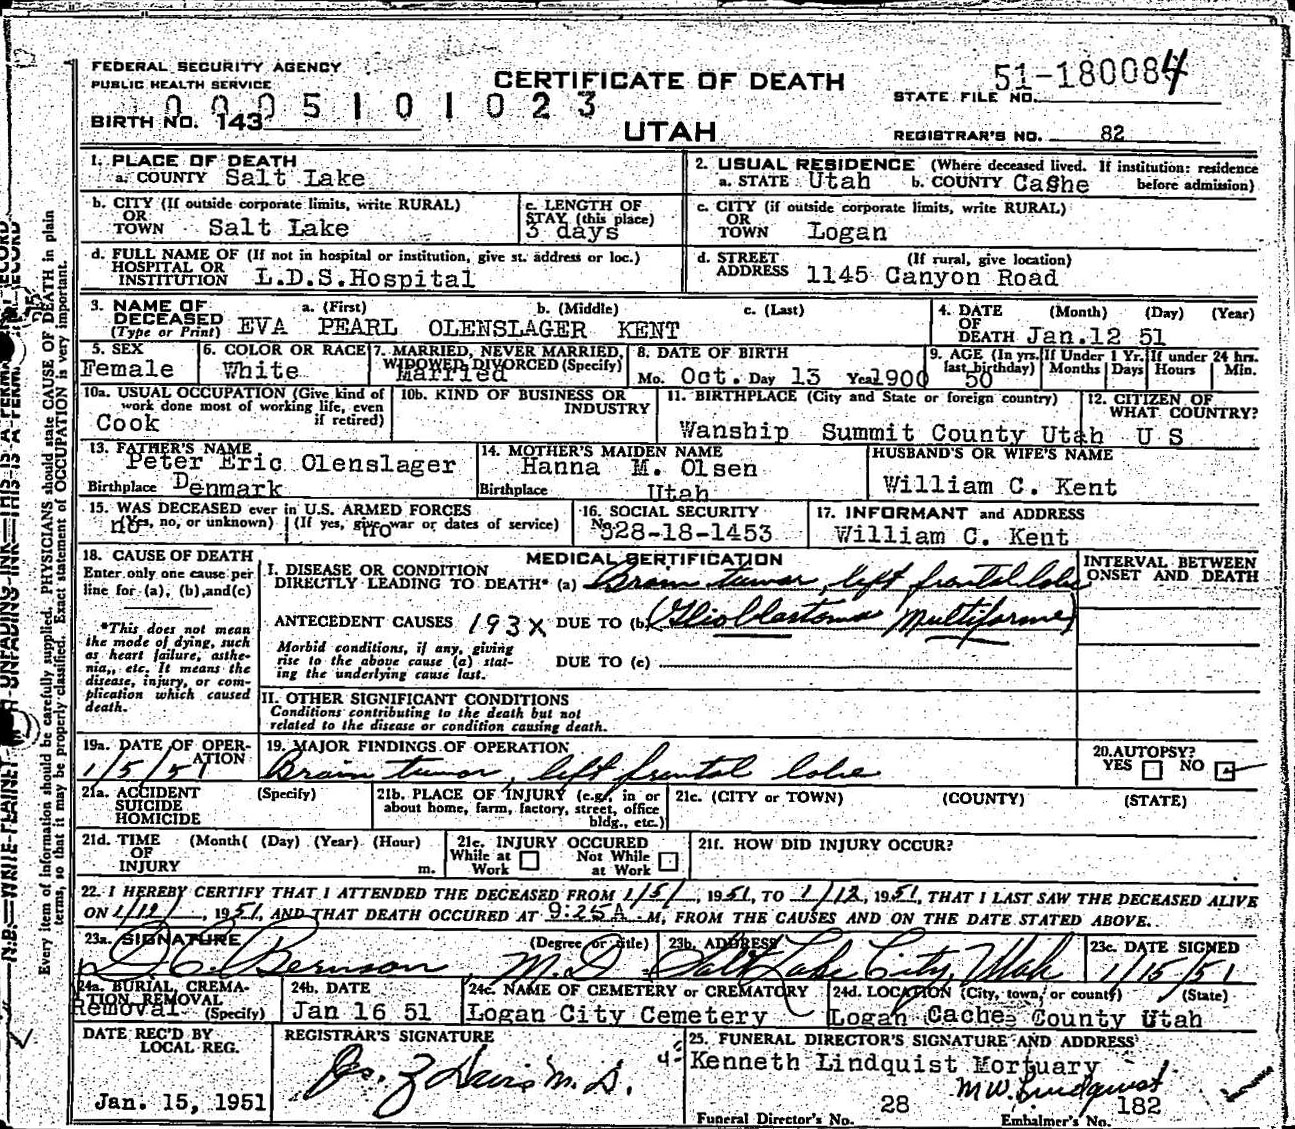 FEDERAL SECURITY AGENCY
PUBLIC HEALTH SERVICE
CERTIFICATE OF DEATH
51-180084
STATE FILE NO.
0 0 0 5 1 0 1 0 2 3
BIRTH NO. 143
UTAH
REGISTRAR'S NO. 82
1. PLACE OF DEATH
a. COUNTY Salt Lake
2. USUAL RESIDENCE (Where deceased lived. If institution: residence
a. STATE Utah b. COUNTY Cashe before admission)
b. CITY (If outside corporate limits, write RURAL)
OR
TOWN Salt Lake
c. LENGTH OF
STAY (this place)
3 days
c. CITY (if outside corporate limits, write RURAL)
OR
TOWN Logan
d. FULL NAME OF (If not in hospital or institution, give st. address or loc.)
HOSPITAL OR
INSTITUTION L.D.S.Hospital
d. STREET (If rural, give location)
ADDRESS 1145 Canyon Road
3. NAME OF a. (First) b. (Middle) c. (Last)
DECEASED
(Type or Print) EVA PEARL OLENSLAGER KENT
4. DATE (Month) (Day) (Year)
OF
DEATH Jan.12 51
5. SEX
Female
6. COLOR OR RACE
White
7. MARRIED, NEVER MARRIED,
WIDOWED, DIVORCED (Specify)
Married
8. DATE OF BIRTH
Mo. Oct. Day 13 Year 1900
9. AGE (In yrs. last birthday) 50
If Under 1 Yr. Months Days
If under 24 hrs. Hours Min.
10a. USUAL OCCUPATION (Give kind of
work done most of working life, even
if retired)
Cook
10b. KIND OF BUSINESS OR
INDUSTRY
11. BIRTHPLACE (City and State or foreign country)
Wanship Summit County Utah
12. CITIZEN OF
WHAT COUNTRY?
U S
13. FATHER'S NAME
Peter Eric Olenslager
Birthplace Denmark
14. MOTHER'S MAIDEN NAME
Hanna M. Olsen
Birthplace Utah
HUSBAND'S OR WIFE'S NAME
William C. Kent
15. WAS DECEASED ever in U.S. ARMED FORCES
(Yes, no, or unknown) no (If yes, give war or dates of service) no
16. SOCIAL SECURITY
No. 528-18-1453
17. INFORMANT and ADDRESS
William C. Kent
18. CAUSE OF DEATH
Enter only one cause per
line for (a), (b),and(c)
*This does not mean
the mode of dying, such
as heart failure, asthe-
nia,, etc. It means the
disease, injury, or com-
plication which caused
death.
MEDICAL CERTIFICATION
I. DISEASE OR CONDITION
DIRECTLY LEADING TO DEATH* (a) Brain tumor, left frontal lobe
ANTECEDENT CAUSES 193X DUE TO (b) (Glioblastoma Multiforme)
Morbid conditions, if any, giving
rise to the above cause (a) stat-
ing the underlying cause last.
DUE TO (c)
INTERVAL BETWEEN
ONSET AND DEATH
II. OTHER SIGNIFICANT CONDITIONS
Conditions contributing to the death but not
related to the disease or condition causing death.
19a. DATE OF OPER-
ATION
1/5/51
19. MAJOR FINDINGS OF OPERATION
Brain tumor, left frontal lobe
20.AUTOPSY?
YES NO
21a. ACCIDENT (Specify)
SUICIDE
HOMICIDE
21b. PLACE OF INJURY (e.g., in or
about home, farm, factory, street, office
bldg., etc.)
21c. (CITY or TOWN) (COUNTY) (STATE)
21d. TIME (Month( (Day) (Year) (Hour)
OF
INJURY m.
21e. INJURY OCCURED
While at Work Not While at Work
21f. HOW DID INJURY OCCUR?
22. I HEREBY CERTIFY THAT I ATTENDED THE DECEASED FROM 1/5/, 1951, TO 1/12, 1951, THAT I LAST SAW THE DECEASED ALIVE
ON 1/12/, 1951, AND THAT DEATH OCCURED AT 9:25A M, FROM THE CAUSES AND ON THE DATE STATED ABOVE.
23a. SIGNATURE (Degree or title)
D.C. Bernson, M.D.
23b. ADDRESS
Salt Lake City, Utah
23c. DATE SIGNED
1/15/51
24a. BURIAL, CREMA-
TION, REMOVAL
Removal (Specify)
24b. DATE
Jan 16 51
24c. NAME OF CEMETERY or CREMATORY
Logan City Cemetery
24d. LOCATION (City, town, or county) (State)
Logan Cache County Utah
DATE REC'D BY
LOCAL REG.
Jan. 15, 1951
REGISTRAR'S SIGNATURE
25. FUNERAL DIRECTOR'S SIGNATURE AND ADDRESS
Kenneth Lindquist Mortuary
M W. Lindquist
Funeral Director's No. 28 Embalmer's No. 182
N.B.—WRITE PLAINLY WITH UNFADING INK—THIS IS A PERMANENT RECORD
Every item of information should be carefully supplied. PHYSICIANS should state CAUSE OF DEATH in plain
terms, so that it may be properly classified. Exact statement of OCCUPATION is very important.